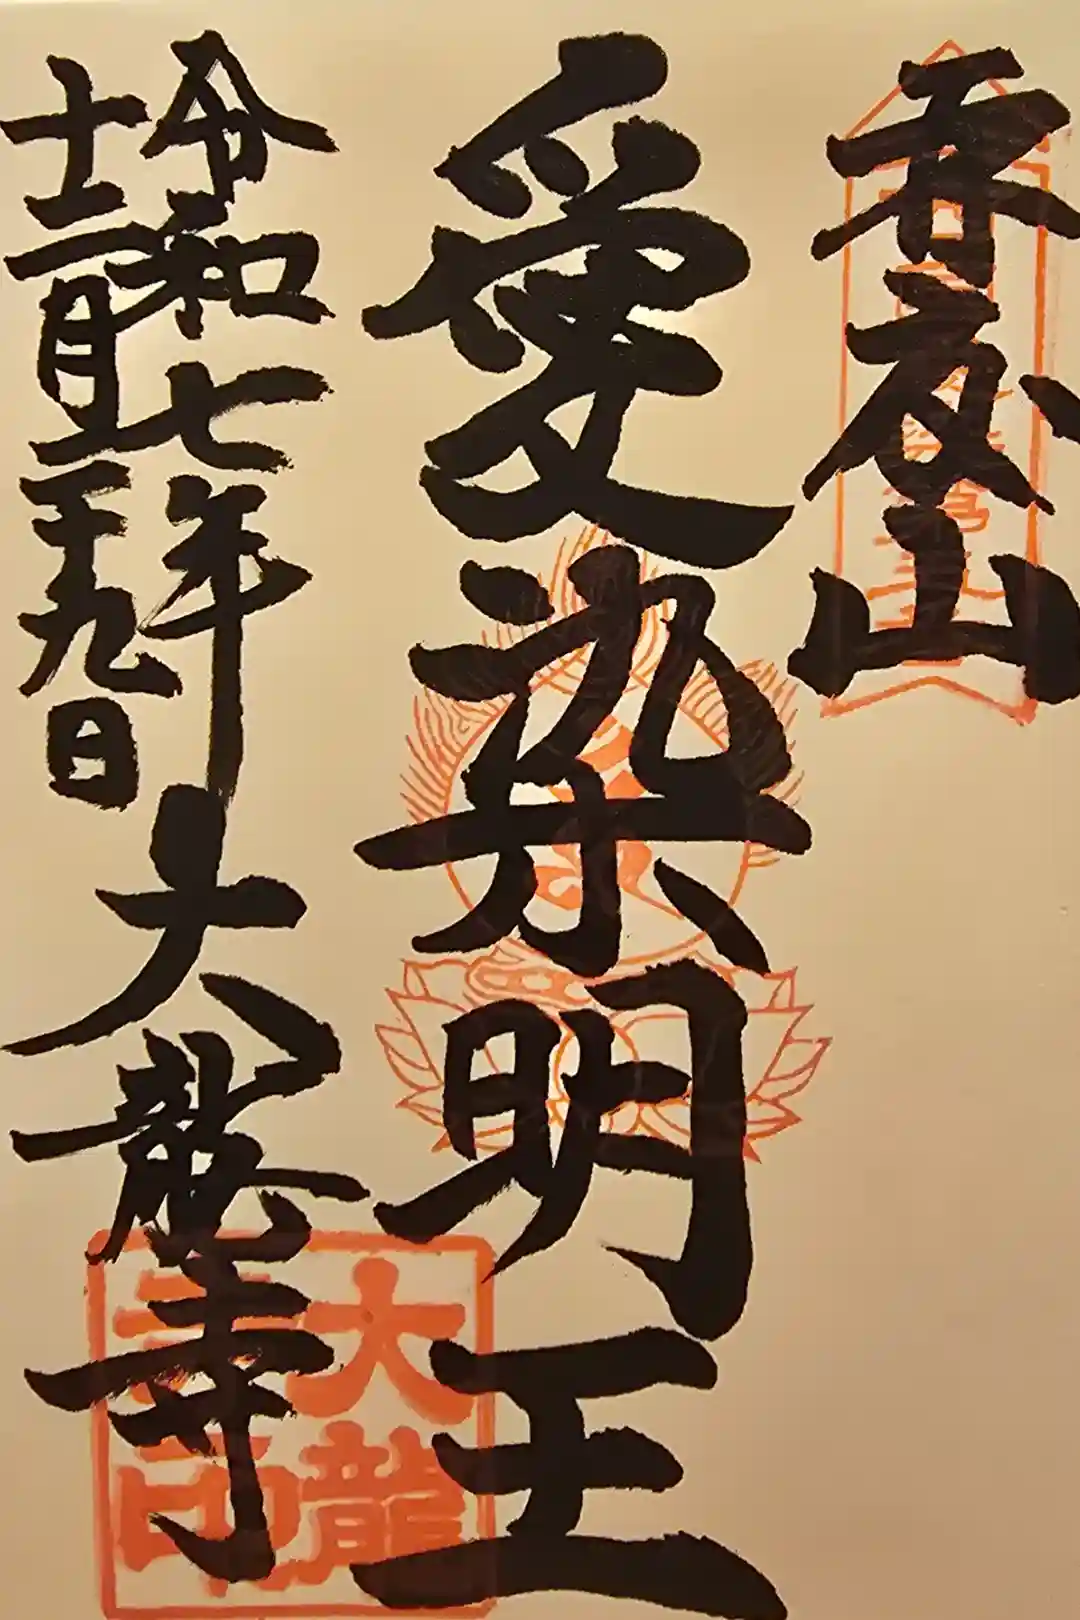 再度山
愛染明王
令和七年
十二月二十九日
大龍寺
大龍
寺印